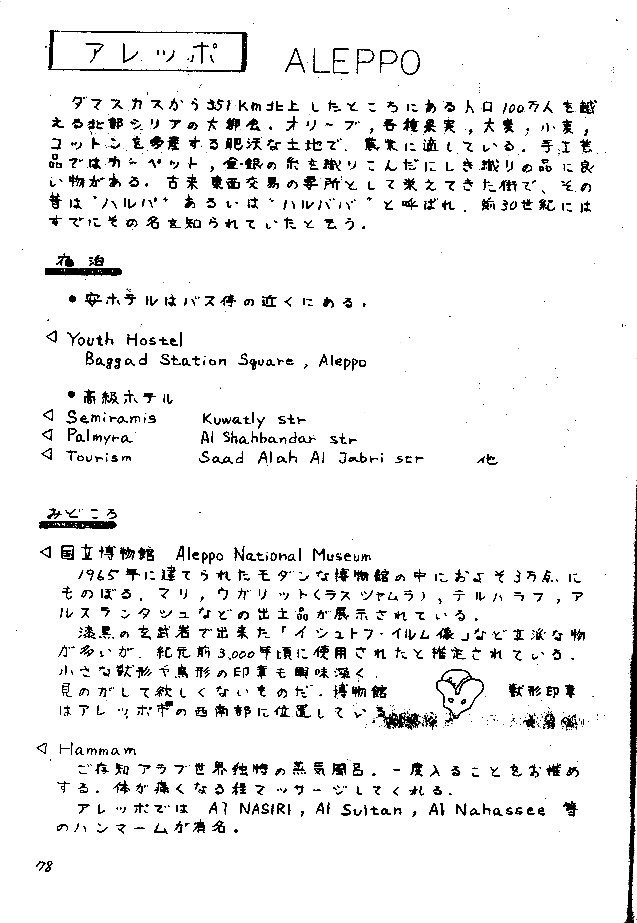 アレッポ ALEPPO
ダマスカスから351Km北上したところにある人口100万人を越
える北部シリアの大都会。オリーブ,各種果実,大麦,小麦,
コットンを多産する肥沃な土地で、農業に適している。手工芸
品ではカーペット,金銀の糸を織りこんだにしき織りの品に良
い物がある。古来東西交易の要所として栄えてきた街で、その
昔は"ハルパ"あるいは"ハルババ"と呼ばれ、前30世紀には
すでにその名を知られていたと言う。
宿泊
●安ホテルはバス停の近くにある。
◁ Youth Hostel
Baggad Station Square , Aleppo
●高級ホテル
◁ Semiramis Kuwatly str
◁ Palmyra Al Shahbandar str
◁ Tourism Saad Alah Al Jabri str 他
みどころ
◁ 国立博物館 Aleppo National Museum
1965年に建てられたモダンな博物館の中におよそ3万点に
ものぼる、マリ,ウガリット(ラスシャムラ),テルハラフ,ア
ルスランタシュなどの出土品が展示されている。
漆黒の玄武岩で出来た「イシュトフ・イルム像」など立派な物
が多いが、紀元前3,000年頃に使用されたと推定されている、
小さな獣形や鳥形の印章も興味深く、
見のがして欲しくないものだ。博物館 獣形印章
はアレッポ市の西南部に位置している
◁ Hammam
ご存知アラブ世界独特の蒸気風呂。一度入ることをお推め
する。体が痛くなる程マッサージしてくれる。
アレッポでは Al NASIRI , Al Sultan , Al Nahassee 等
のハンマームが有名。
78